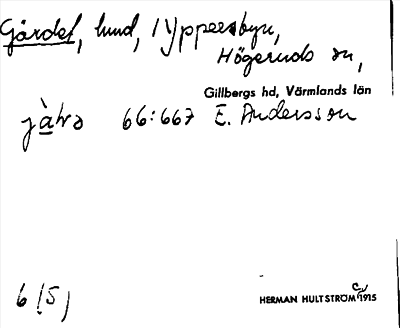 Gärdet, lund, i Ypperesbyn,
Högeruds sn,
Gillbergs hd, Värmlands län
jàtʋɔ 66:667 E. Andersson
6 (5)
HERMAN HULTSTRÖM 1915